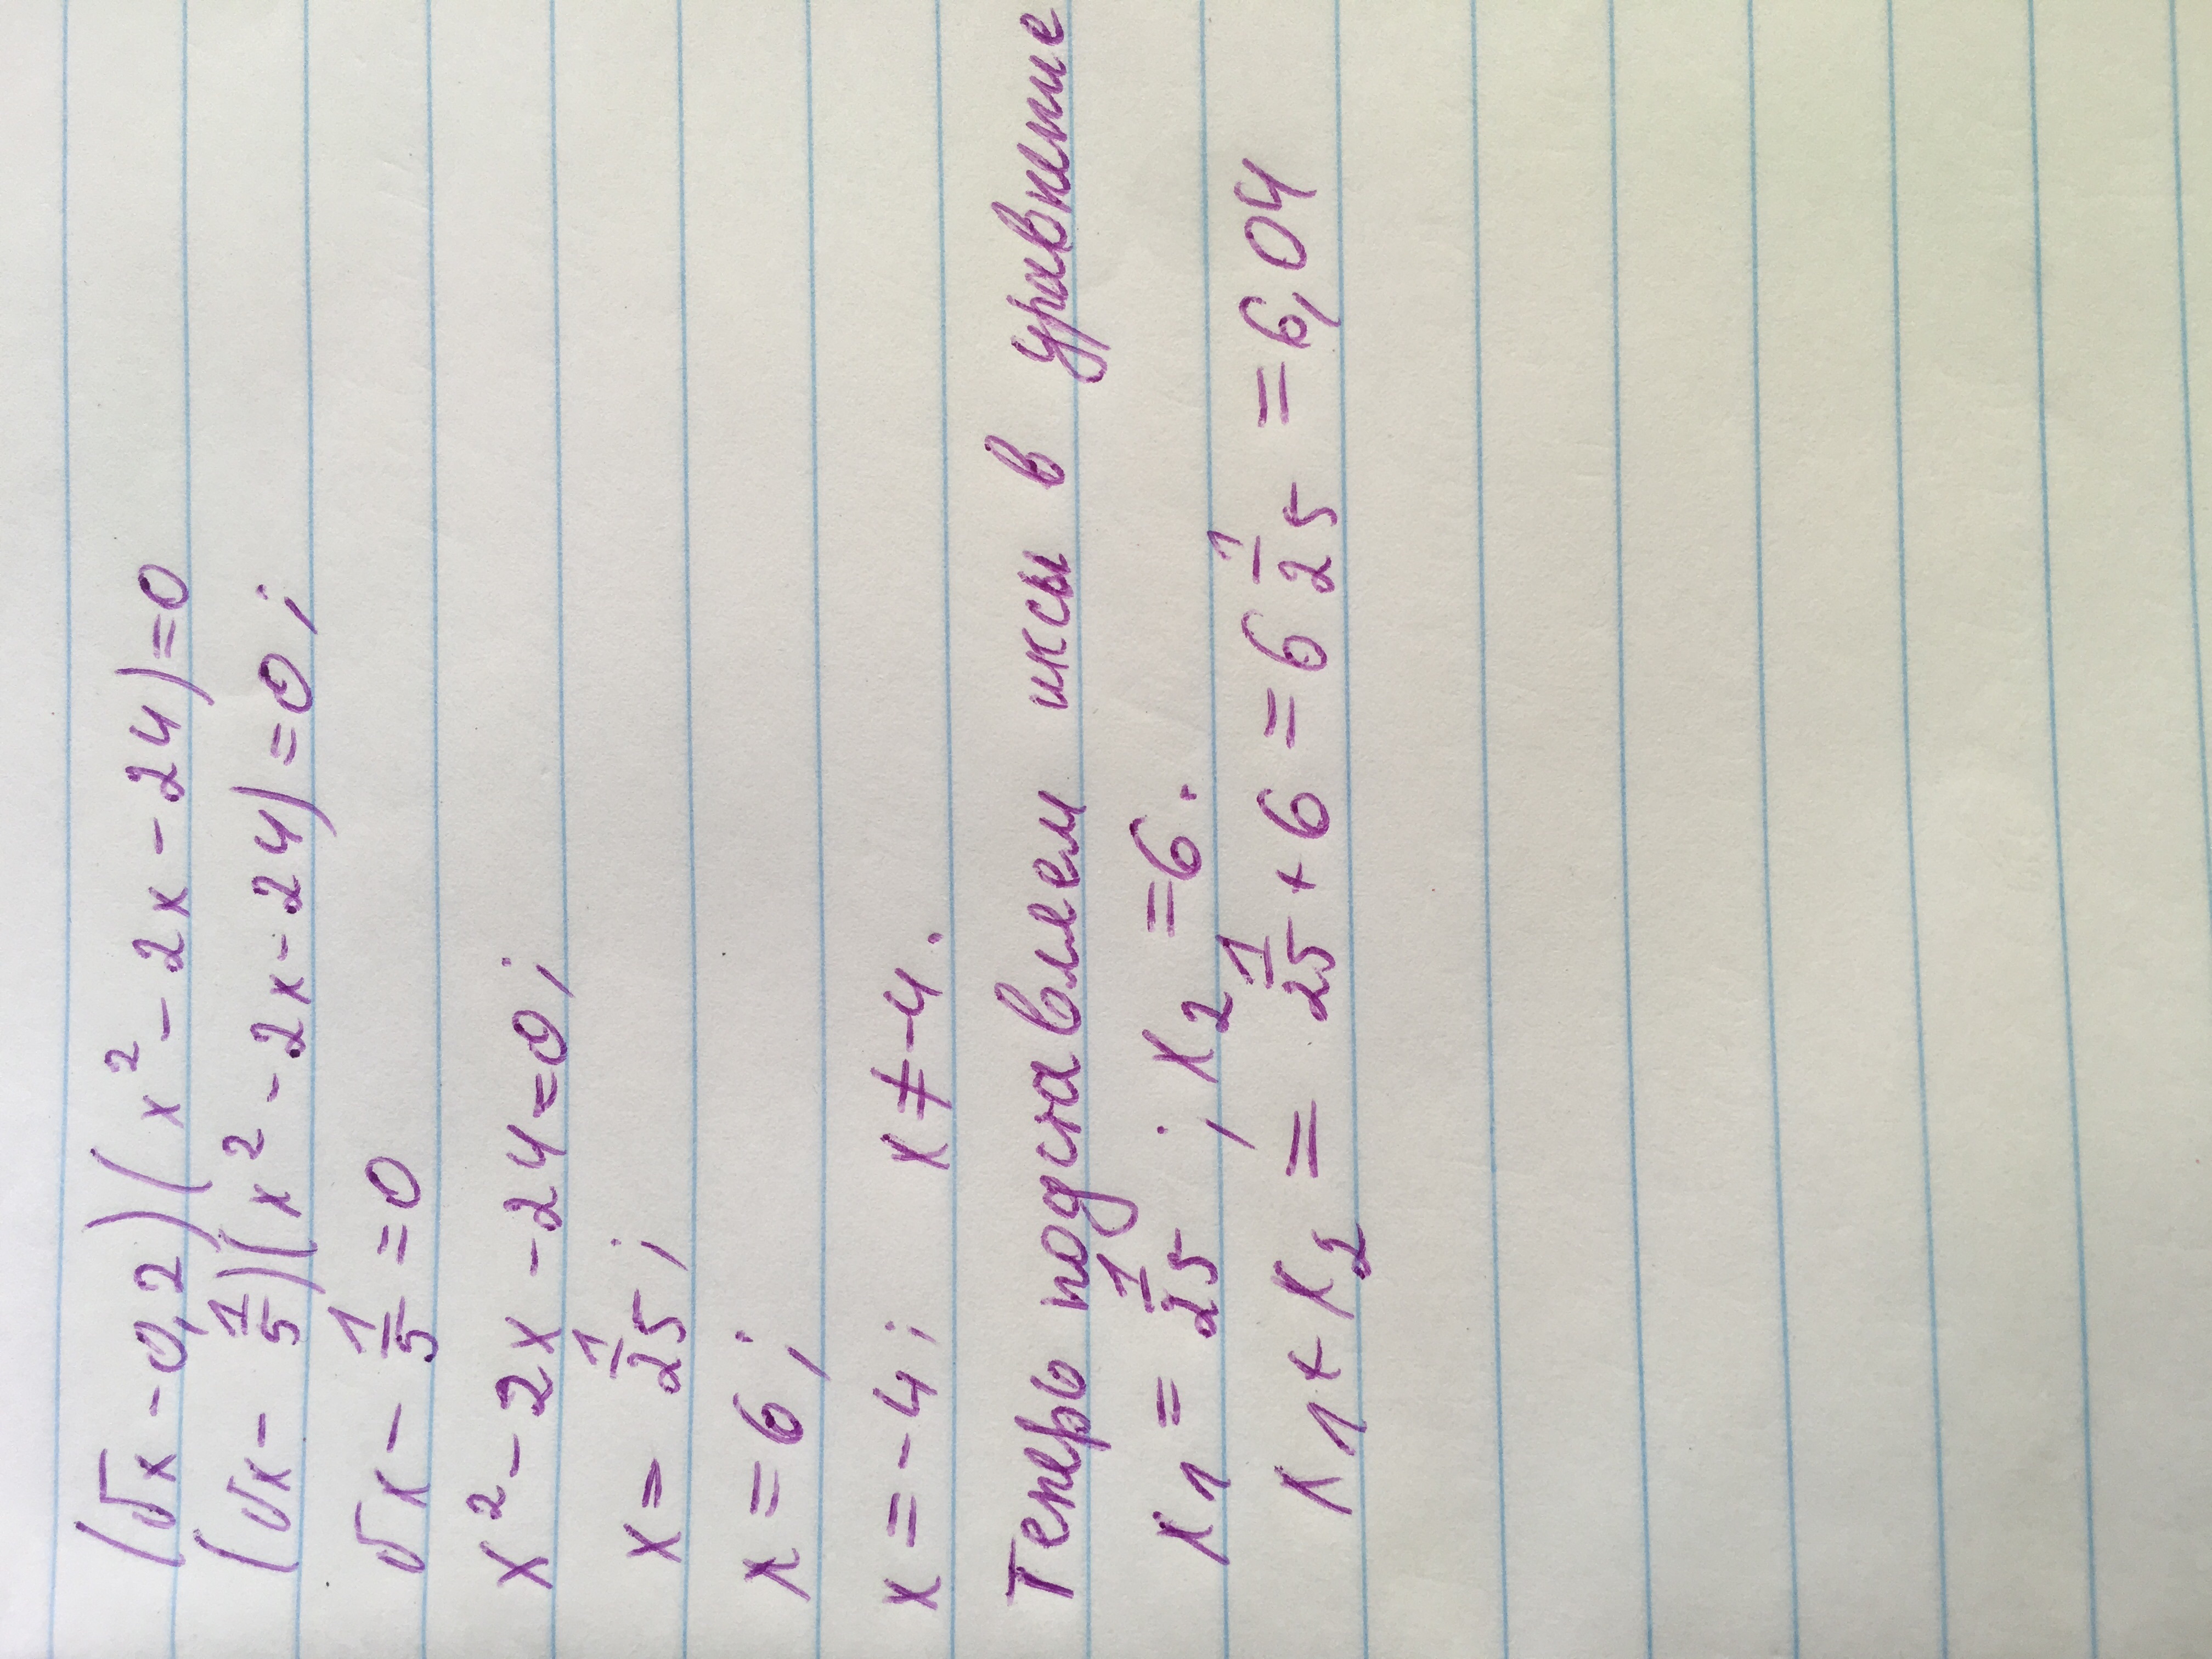 (√x - 0,2)(x² - 2x - 24)=0
(√x - 1/5)(x² - 2x - 24)=0;
√x - 1/5 = 0
x² - 2x - 24=0;
x = 1/25;
x = 6;
x = -4; x ≠ -4.
Теперь подставляем иксы в уравнение
x1 = 1/25; x2 = 6.
x1 + x2 = 1/25 + 6 = 6 1/25 = 6,04